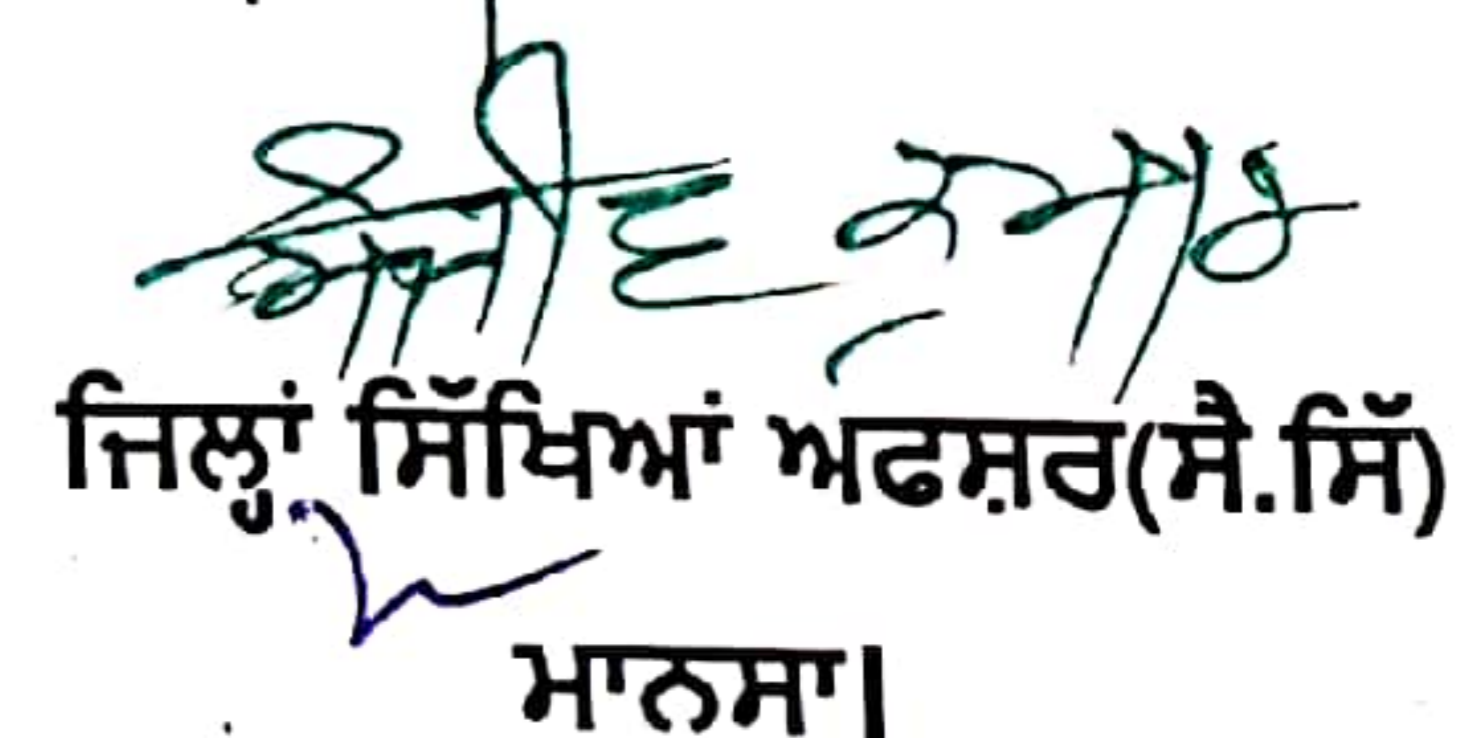 ਕੁਮਾਰ
ਜਿਲ੍ਹਾਂ ਸਿੱਖਿਆਂ ਅਫਸ਼ਰ(ਸੈ.ਸਿੱ)
ਮਾਨਸਾ।